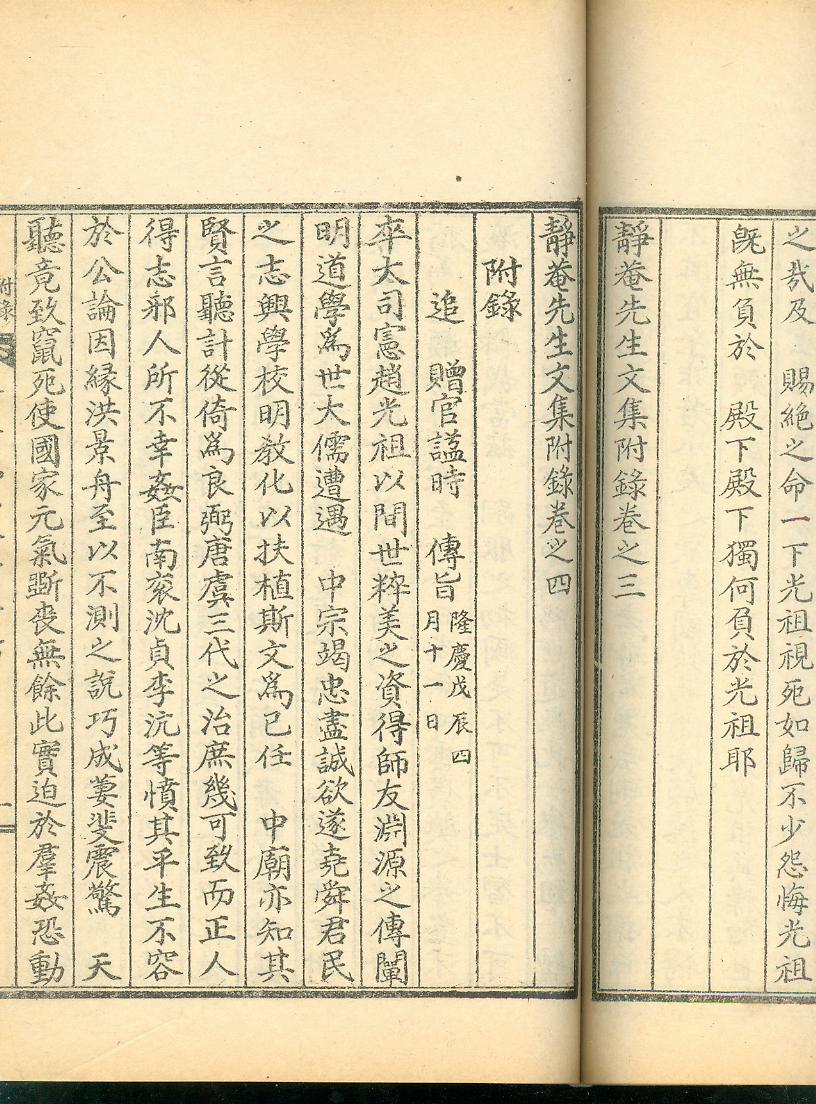 之哉及 賜絶之命一下光祖視死如歸不少怨悔光祖
旣無負於 殿下殿下獨何負於光祖耶
靜菴先生文集附錄卷之三
靜菴先生文集附錄卷之四
附錄
追 贈官諡時 傳旨 隆慶戊辰四
月十一日
卒大司憲趙光祖以間世粹美之資得師友淵源之傳闡
明道學爲世大儒遭遇 中宗竭忠盡誠欲遂堯舜君民
之志興學校明敎化以扶植斯文爲已任 中廟亦知其
賢言聽計從倚爲良弼唐虞三代之治庶幾可致而正人
得志邪人所不幸姦臣南衮沈貞李沆等憤其平生不容
於公論因緣洪景舟至以不測之說巧成萋斐震驚 天
聽竟致竄死使國家元氣斲喪無餘此實迫於羣姦恐動
附錄